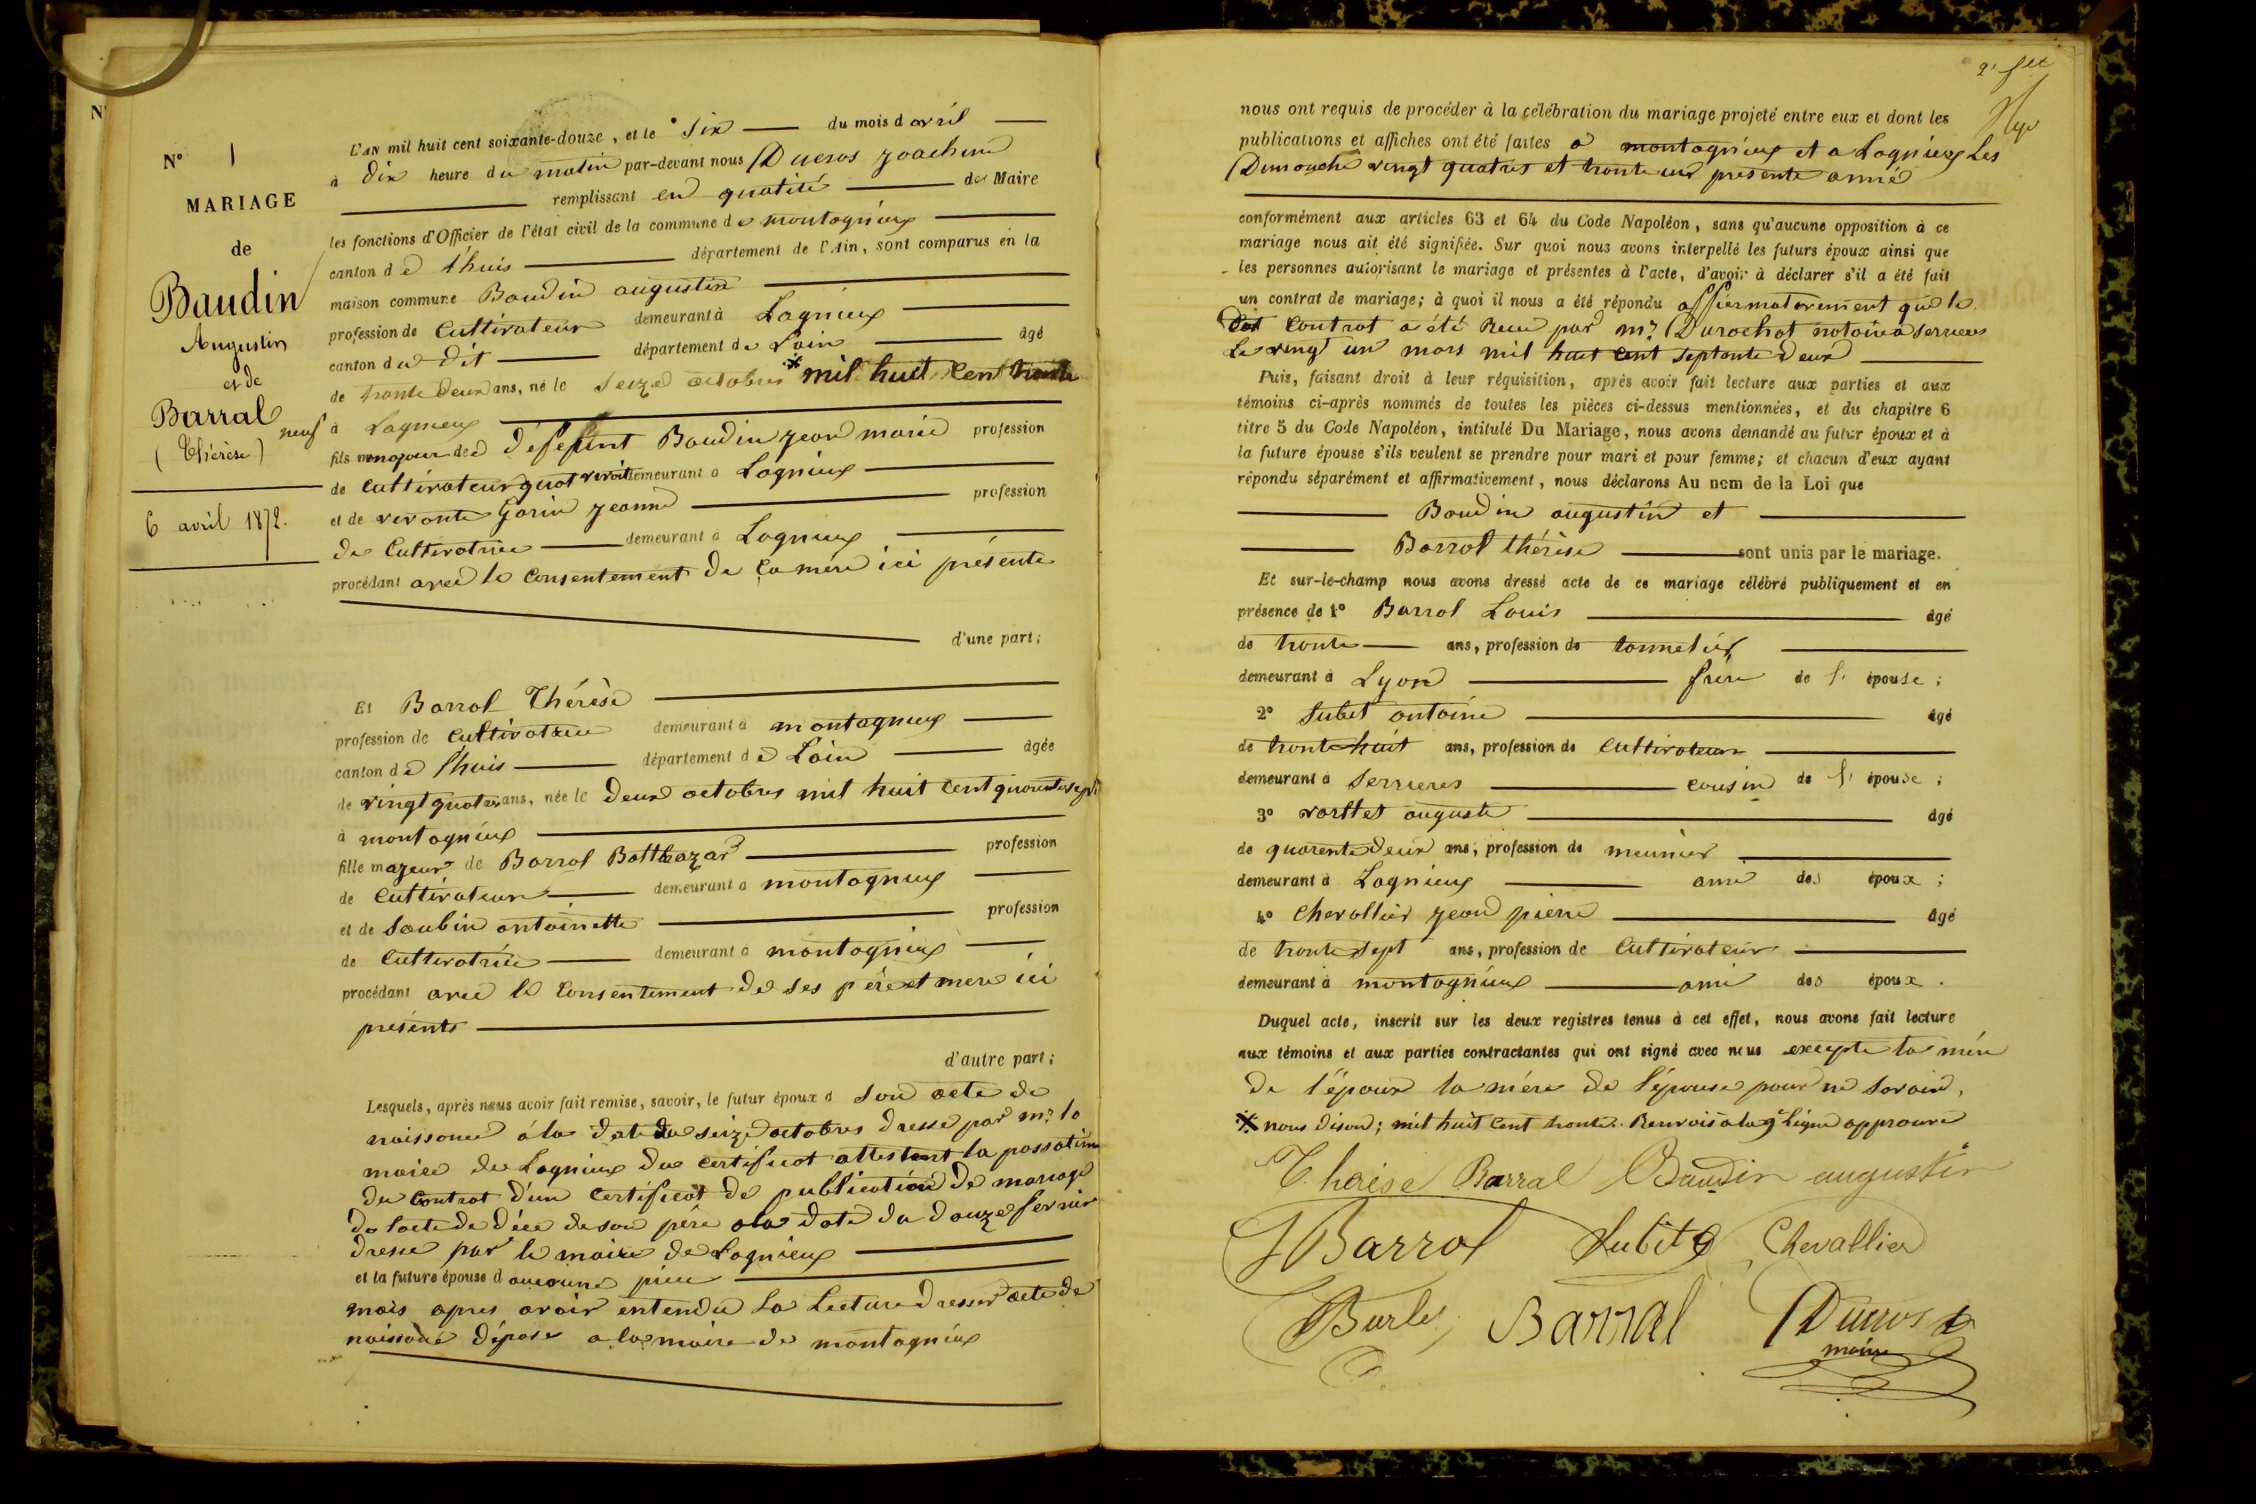 N°
N° 1
MARIAGE
de
Baudin
Augustin
et de
Barral
(Thérèse)
6 avril 1872.
L'AN mil huit cent soixante-douze, et le six du mois d avril
à dix heure du matin par-devant nous Ducros joachim
remplissant en qualité de Maire
les fonctions d'Officier de l'état civil de la commune de montagnieux
canton de l'huis département de l'Ain, sont comparus en la
maison commune Baudin augustin
profession de cultivateur demeurant à Lagnieux
canton du dit département de Lain âgé
de trente deux ans, né le seize octobre * mil huit cent trente
neuf à Lagnieux
fils majeur de défefunt Baudin jean marie profession
de cultivateur quat vivait demeurant a Lagnieux
et de vivante Garin jeanne profession
de Cultivatrice demeurant à Lagnieux
procédant avec le consentement de ça mère ici présente
d'une part;
Et Barral Thérèse
profession de cultivatrice demeurant à montagnieux
canton de l'huis département de Lain âgée
de vingt quatre ans, née le deux octobre mil huit cent quarante sept
à montagnieux
fille majeur de Barral Balthazar profession
de cultivateur demeurant a montagnieux
et de Saubin antoinette profession
de Cultivatrice demeurant à montagnieux
procédant avec le consentement de ses père et mere ici
présents
d'autre part;
Lesquels, après nous avoir fait remise, savoir, le futur époux d son acte de
naissance à la date du seize octobre dressé par mr le
maire de Lagnieux du certificat attestant la passation
du contrat d'un certificat de publication de mariage
de lacte de décé de son père a la date du douze fervier
dressé par le maire de Lagnieux
et la future épouse d aucune piece
mais apres avoir entendu la Lecture dresser acte de
naissance déposé a la maire de montagnieux
2e flet
nous ont requis de procéder à la célébration du mariage projeté entre eux et dont les
publications et affiches ont été faites a montagnieux et a Lagnieux Les
Dimanche vingt quatre et trente un présente année
conformément aux articles 63 et 64 du Code Napoléon, sans qu'aucune opposition à ce
mariage nous ait été signifiée. Sur quoi nous avons interpellé les futurs époux ainsi que
les personnes autorisant le mariage et présentes à l'acte, d'avoir à déclarer s'il a été fait
un contrat de mariage; à quoi il nous a été répondu affiermativement que le
dit contrat a été Recu par mr Durochat notaire a serrieres
Le vingt un mars mil huit cent septante deux
Puis, faisant droit à leur réquisition, après avoir fait lecture aux parties et aux
témoins ci-après nommés de toutes les pièces ci-dessus mentionnées, et du chapitre 6
titre 5 du Code Napoléon, intitulé Du Mariage, nous avons demandé au futur époux et à
la future épouse s'ils veulent se prendre pour mari et pour femme; et chacun d'eux ayant
répondu séparément et affirmativement, nous déclarons Au nom de la Loi que
Baudin augustin et
Barral thérèse sont unis par le mariage.
Et sur-le-champ nous avons dressé acte de ce mariage célébré publiquement et en
présence de 1° Barral Louis âgé
de trente ans, profession de tonnelier
demeurant à Lyon frère de l'épouse;
2° Subit antoine âgé
de trente huit ans, profession de cultivateur
demeurant à Serrieres cousin de l'épouse;
3° vorllet auguste âgé
de quarente deux ans, profession de meunier
demeurant à Lagnieux ami des époux;
4° Chevallier jean pierre âgé
de trente sept ans, profession de Cultivateur
demeurant à montagnieux ami des époux.
Duquel acte, inscrit sur les deux registres tenus à cet effet, nous avons fait lecture
aux témoins et aux parties contractantes qui ont signé avec nous excepte la mére
de l'époux la mére de l'épouse pour ne savoir.
* nous dison; mil huit cent trente. Renvois a la 9e Ligne approuvé
Thérise Barral Baudin augustin
Barral Subit Chevallier
Burlet Barral Ducros
maire